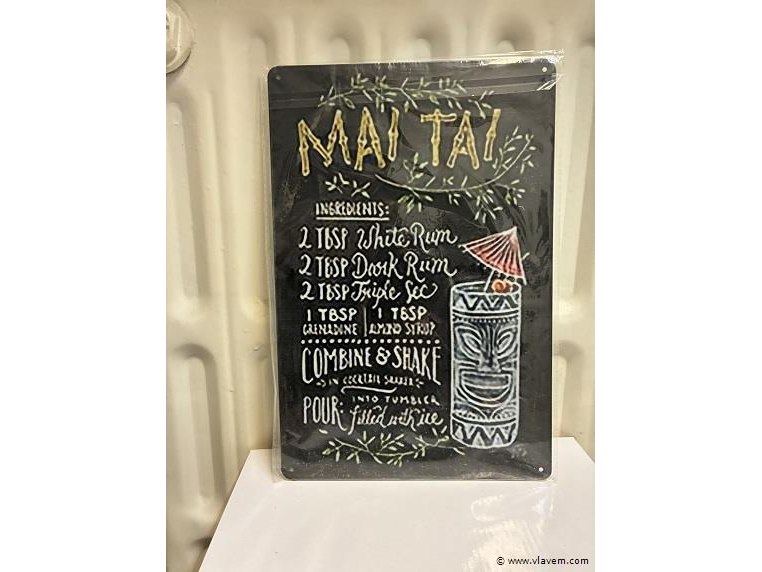 MAI TAI
INGREDIENTS:
2 TBSP White Rum
2 TBSP Dark Rum
2 TBSP Triple Sec
1 TBSP GRENADINE | 1 TBSP ALMOND SYRUP
COMBINE & SHAKE
IN COCKTAIL SHAKER
POUR: INTO TUMBLER
filled with ice
© www.vlavem.com